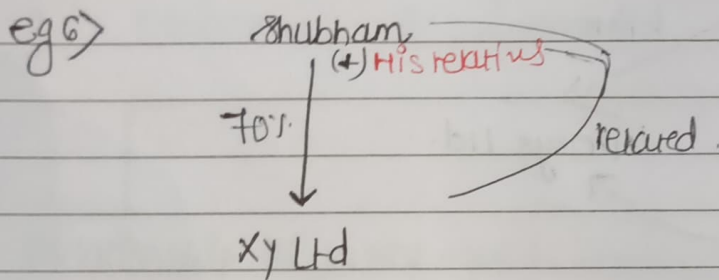 eg 6>
Shubham
(+) His relatives
70%
related
XY Ltd